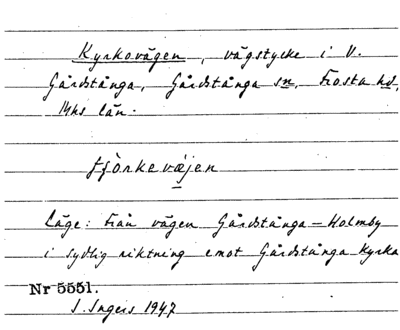 Kyrkovägen, vägstycke i V.
Gårdstånga, Gårdstånga sn, Frosta hd,
Mhs län.
tjörkevæjen
Läge: från vägen Gårdstånga-Holmby
i sydlig riktning emot Gårdstånga kyrka
Nr 5551.
I. Ingers 1947